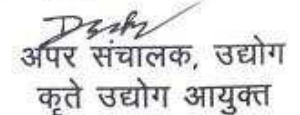 अपर संचालक, उद्योग
कृते उद्योग आयुक्त